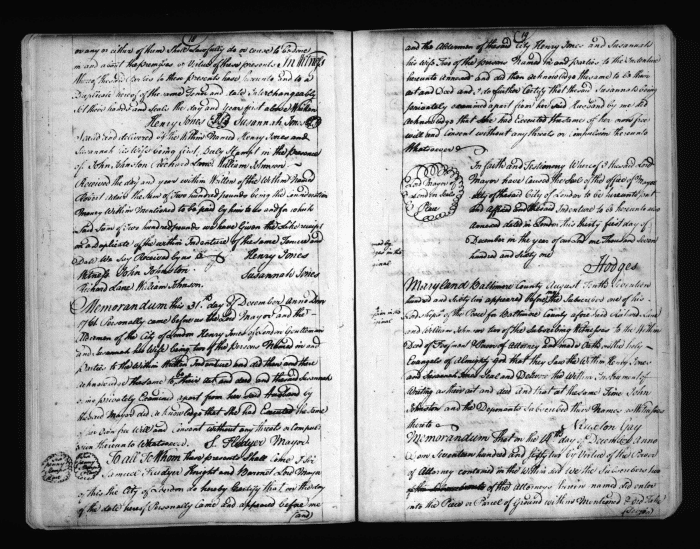 18
or any or either of them Shall Lawfully do or cause to be done
in and about the premises by Virtue of these presents In Witness
Whereof the Said Parties to these presents have hereunto and to a
Duplicate hereof of the same Tenor and date Interchangeably
Set their hands and Seals the day and Year first above Written
Henry Jones Susannah Jones
Sealed and delivered by the Within Named Henry Jones and
Susannah his Wife being first Duly Stampt in the presence
of John Johnston Richard Lane William Johnson
Received the day and year within Written of the Within Named
the Sum of Two hundred pounds being the Consideration
Money Within Mentioned to be paid by him to us and for which
said Sum of Two hundred pounds we have Given the like receipt
on a duplicate of the within Indenture of the same Tenor and
Date We Say Received by us
Henry Jones
Witness John Johnston
Susannah Jones
Richard Lane William Johnson
Memorandum this 31st day of December Anno Dom
Personally came before me the Lord Mayor and the
Aldermen of the City of London Henry Jones of London Gentleman
and Susannah his Wife being two of the persons Named in and
parties to the Within Written Indenture and did then and there
acknowledge the same to be their act and deed and the said Susannah
being privately Examined apart from her said Husband by
the Lord Mayor did acknowledge that She had Executed the same
of her own free Will and Consent without any threats or compulsion
hereunto Whatsoever
S. Fludyer Mayor
To all To Whom these presents Shall Come I Sir
Samuel Fludyer Knight and Baronet Lord Mayor
of the City of London do hereby Certify that on the day
of the date hereof Personally came and appeared before me
(and
19
and the Aldermen of the said City Henry Jones and Susannah
his Wife two of the persons Named in and parties to the Indenture
hereunto annexed and did then acknowledge the same to be their
act and Deed and I do further Certify that the said Susannah being
privately examined apart from her said Husband by me did
acknowledge that She had Executed the same of her own free
will and Consent without any threats or Compulsion thereunto
Whatsoever
Lord Mayor of
London Seals
Place
In Faith and Testimony Whereof I the said Lord
Mayor have caused the Seal of the office of Mayor
alty of the said City of London to be hereunto put
and the Indenture to be hereunto also
annexed dated in London this thirty first day of
December in the year of our Lord one Thousand Seven
hundred and Sixty one
Hodges
Maryland Baltimore County August Tenth Seventeen
hundred and Sixty two appeared before the Subscriber one of his
Lordships of the Peace for Baltimore County aforesaid Richard Lane
and William Johnson two of the Subscribing Witnesses to the Within
Deed of Power of Attorney and made Oath on the Holy
Evangels of Almighty God that they Saw the Within Henry Jones
and Susannah Jones Seal and Deliver the Within Instrument of
Writing as their act and deed and that at the same Time John
Johnston and the Deponents Subscribed their Names as Witnesses
thereto
Gay
Memorandum That on the 14th day of December Anno
Dom Seventeen hundred and Sixty two by Virtue of the Power
of Attorney contained in the Within Deed We the Subscribers two
of the Attorneys therein named did enter
into the Piece or Parcel of Ground within Mentioned